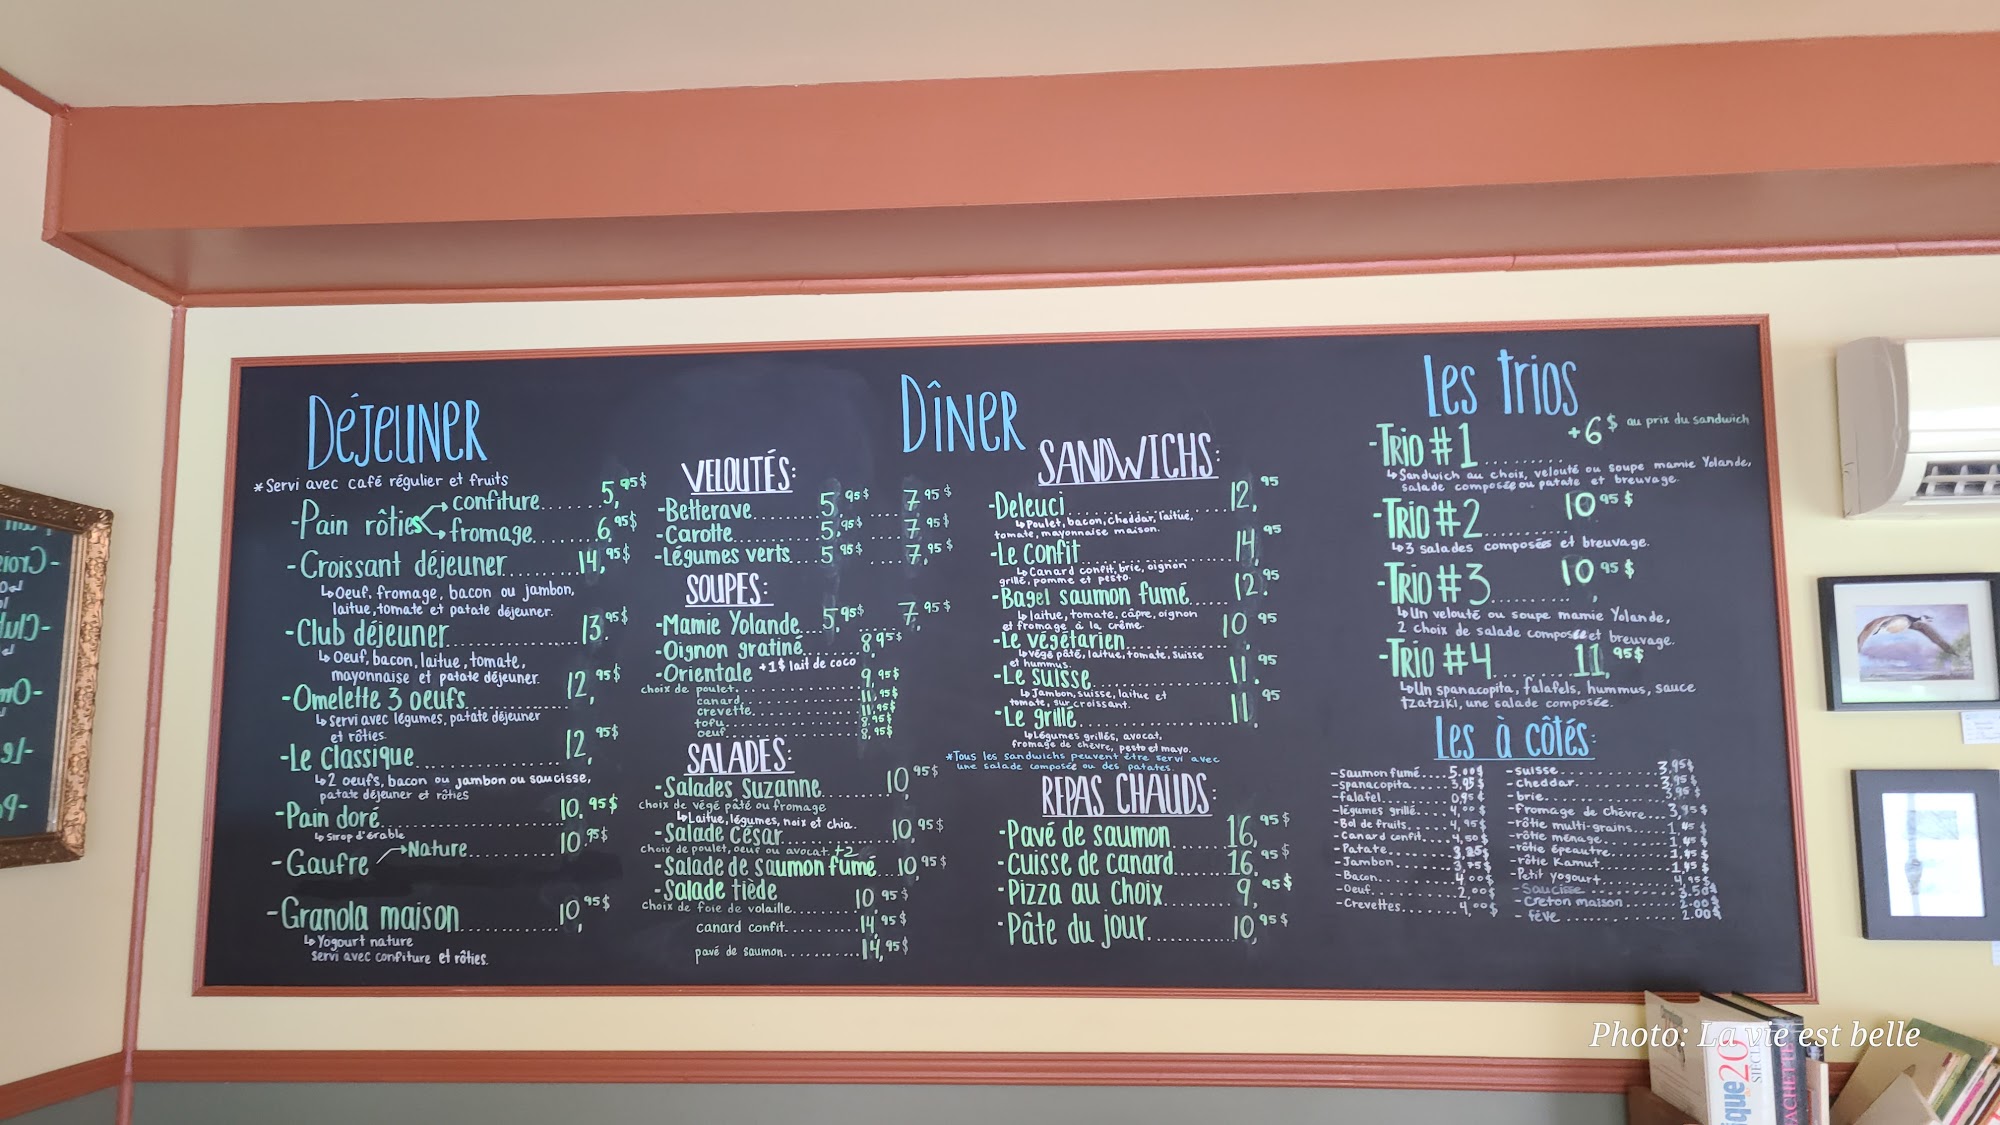 DÉJEUNER
*Servi avec café régulier et fruits
-Pain rôties confiture....... 5,95$
fromage....... 6,95$
-Croissant déjeuner....... 14,95$
↳Oeuf, fromage, bacon ou jambon,
laitue, tomate et patate déjeuner.
-Club déjeuner....... 13,95$
↳Oeuf, bacon, laitue, tomate,
mayonnaise et patate déjeuner.
-Omelette 3 oeufs....... 12,95$
↳Servi avec légumes, patate déjeuner
et rôties.
-Le Classique....... 12,95$
↳2 oeufs, bacon ou jambon ou saucisse,
patate déjeuner et rôties
-Pain doré....... 10.95$
↳Sirop d'érable
-Gaufre →Nature....... 10,95$
-Granola maison....... 10,95$
↳Yogourt nature
Servi avec confiture et rôties.
DÎNER
VELOUTÉS:
-Betterave....... 5,95$ .... 7,95$
-Carotte....... 5,95$ .... 7,95$
-Légumes verts.... 5 95$ .... 7,95$
SOUPES:
-Mamie Yolande... 5,95$ .... 7,95$
-Oignon gratiné....... 8,95$
-Orientale +1$ lait de coco
choix de poulet....... 9,95$
canard....... 11,95$
crevette....... 11,95$
tofu....... 8,95$
oeuf....... 8,95$
SALADES:
-Salades Suzanne....... 10,95$
choix de végé pâté ou fromage
↳Laitue, légumes, noix et chia.
-Salade César....... 10,95$
choix de poulet, oeuf ou avocat +2
-Salade de saumon fumé... 10,95$
-Salade tiède
choix de foie de volaille....... 10 95$
canard confit....... 14,95$
pavé de saumon....... 14,95$
SANDWICHS:
-Deleuci....... 12,95
↳Poulet, bacon, cheddar, laitue,
tomate, mayonnaise maison.
-Le confit....... 14,95
↳Canard confit, brie, oignon
grillé, pomme et pesto.
-Bagel saumon fumé..... 12.95
↳laitue, tomate, câpre, oignon
et fromage à la crème.
-Le végétarien....... 10,95
↳végé pâté, laitue, tomate, suisse
et hummus.
-Le suisse....... 11.95
↳Jambon, suisse, laitue et
tomate, sur croissant.
-Le grillé....... 11,95
↳Légumes grillés, avocat,
fromage de chèvre, pesto et mayo.
*Tous les sandwichs peuvent être servi avec
une salade composée ou des patates.
REPAS CHAUDS:
-Pavé de saumon....... 16,95$
-Cuisse de canard....... 16,95$
-Pizza au choix....... 9,95$
-Pâte du jour....... 10,95$
Les trios
-Trio #1....... +6$ au prix du sandwich
↳Sandwich au choix, velouté ou soupe mamie Yolande,
salade composée ou patate et breuvage.
-Trio #2....... 10 95$
↳3 salades composées et breuvage.
-Trio #3....... 10,95$
↳Un velouté ou soupe mamie Yolande,
2 choix de salade composée et breuvage.
-Trio #4....... 11,95$
↳Un spanacopita, falafels, hummus, sauce
tzatziki, une salade composée.
Les à côtés:
-Saumon fumé.... 5.00$
-Spanacopita.... 3,95$
-falafel....... 0,95¢
-légumes grillé.... 4,00$
-Bol de fruits.... 4,95$
-Canard confit.... 4,50$
-Patate....... 3,25$
-Jambon....... 3,75$
-Bacon....... 4,00$
-Oeuf....... 2,00$
-Crevettes....... 4,00$
-suisse....... 3,95$
-cheddar....... 3,95$
-brie....... 3,95$
-fromage de chèvre... 3,95$
-rôtie multi-grains.... 1,95$
-rôtie ménage....... 1,95$
-rôtie épeautre....... 1,95$
-rôtie Kamut....... 1,95$
-Petit yogourt....... 4,95$
-Saucisse....... 3.50$
-Creton maison....... 2.00$
-fève....... 2.00$
Photo: La vie est belle